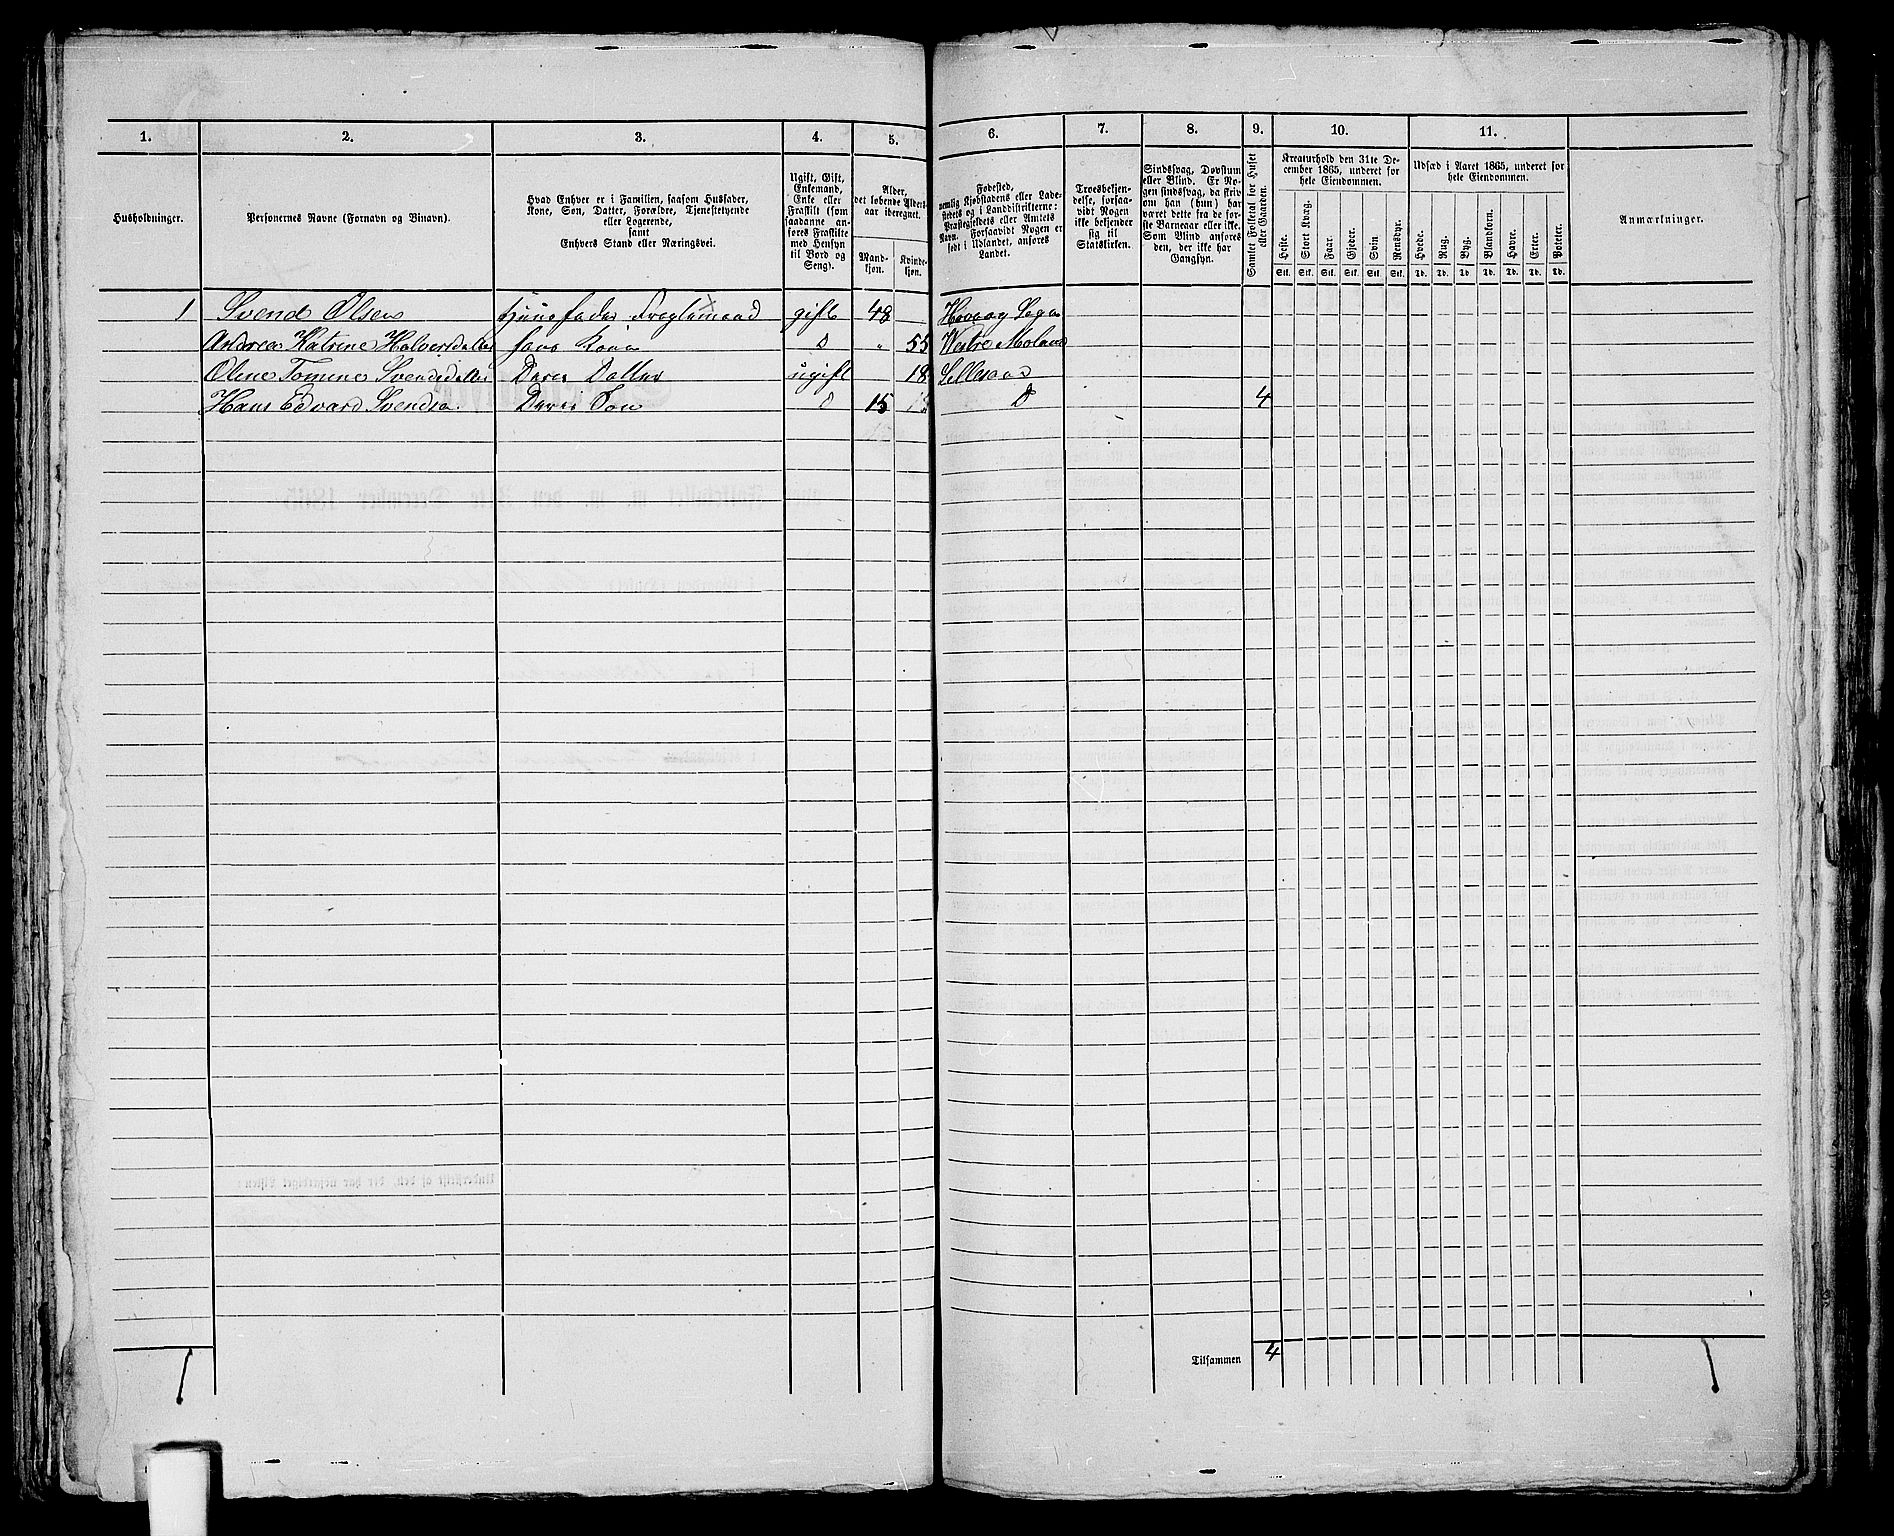 1. 2. 3. 4. 5. 6. 7. 8. 9. 10. 11.
Husholdninger.
Personernes Navne (Fornavn og Binavn).
Hvad Enhver er i Familien, saasom Husfader,
Kone, Søn, Datter, Forældre, Tjenestetyende
eller Logerende,
samt
Enhvers Stand eller Næringsvei.
Ugift, Gift,
Enkemand,
Enke eller
Fraskilt (som
saadanne an-
føres Fraskilte
med Hensyn
til Bord og
Seng).
Alder,
det løbende Alders-
aar iberegnet.
Mand-
kjøn.
Kvinde-
kjøn.
Fødested,
nemlig Kjøbstadens eller Lade-
stedets og i Landdistrikterne:
Præstegjeldets eller Amtets
Navn. Forsaavidt Nogen er
født i Udlandet, anføres
Landet.
Troesbekjen-
delse, forsaa-
vidt Nogen
ikke bekjender
sig til
Statskirken.
Sindssvag, Døvstum
eller Blind. Er No-
gen sindssvag, da skriv
om han (hun) har
været dette fra de før-
ste Barneaar eller ikke.
Som Blind anføres
den, der ikke har
Gangsyn.
Samlet Folketal for Huset
eller Gaarden.
Kreaturhold den 31te De-
cember 1865, underet for
hele Eiendommen.
Heste. Stort Kvæg. Faar. Gjeder. Svin. Rensdyr.
Stk. Stk. Stk. Stk. Stk. Stk.
Udsæd i Aaret 1865, underet for
hele Eiendommen.
Hvede. Rug. Byg. Blandkorn. Havre. Erter. Poteter.
Td. Td. Td. Td. Td. Td. Td.
Anmærkninger.
1 Svend Olsen Huusfader gift 48 Høvaag
Andrea Katrine hans Kone D „ 55 Westre Moland
Olene Tomine Deres Datter ugift 18 Lillesand
Hans Edvard Svendsen Deres Søn D 15 D 4
1 Tilsammen 4